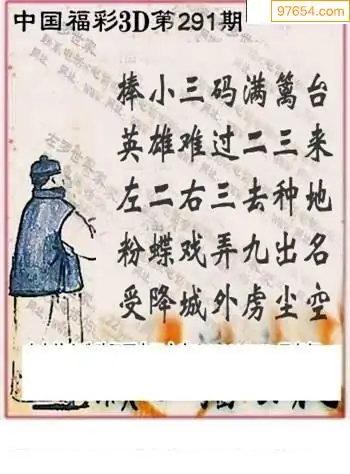 97654.com
中国福彩3D第291期
棒小三码满篱台
英雄难过二三来
左二右三去种地
粉蝶戏弄九出名
受降城外虏尘空